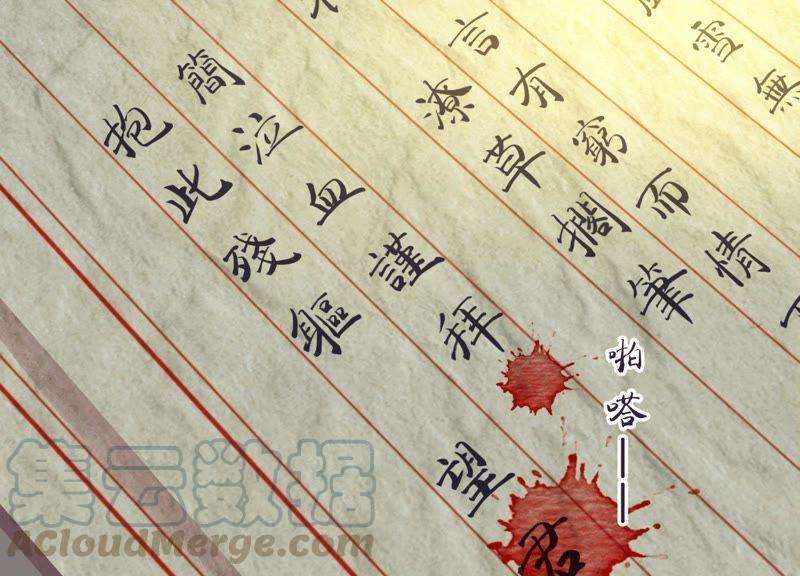 雪無
言有窮而情
潦草擱筆
簡泣血謹拜
抱此殘軀 望君
啪嗒——
集云数据
ACloudMerge.com